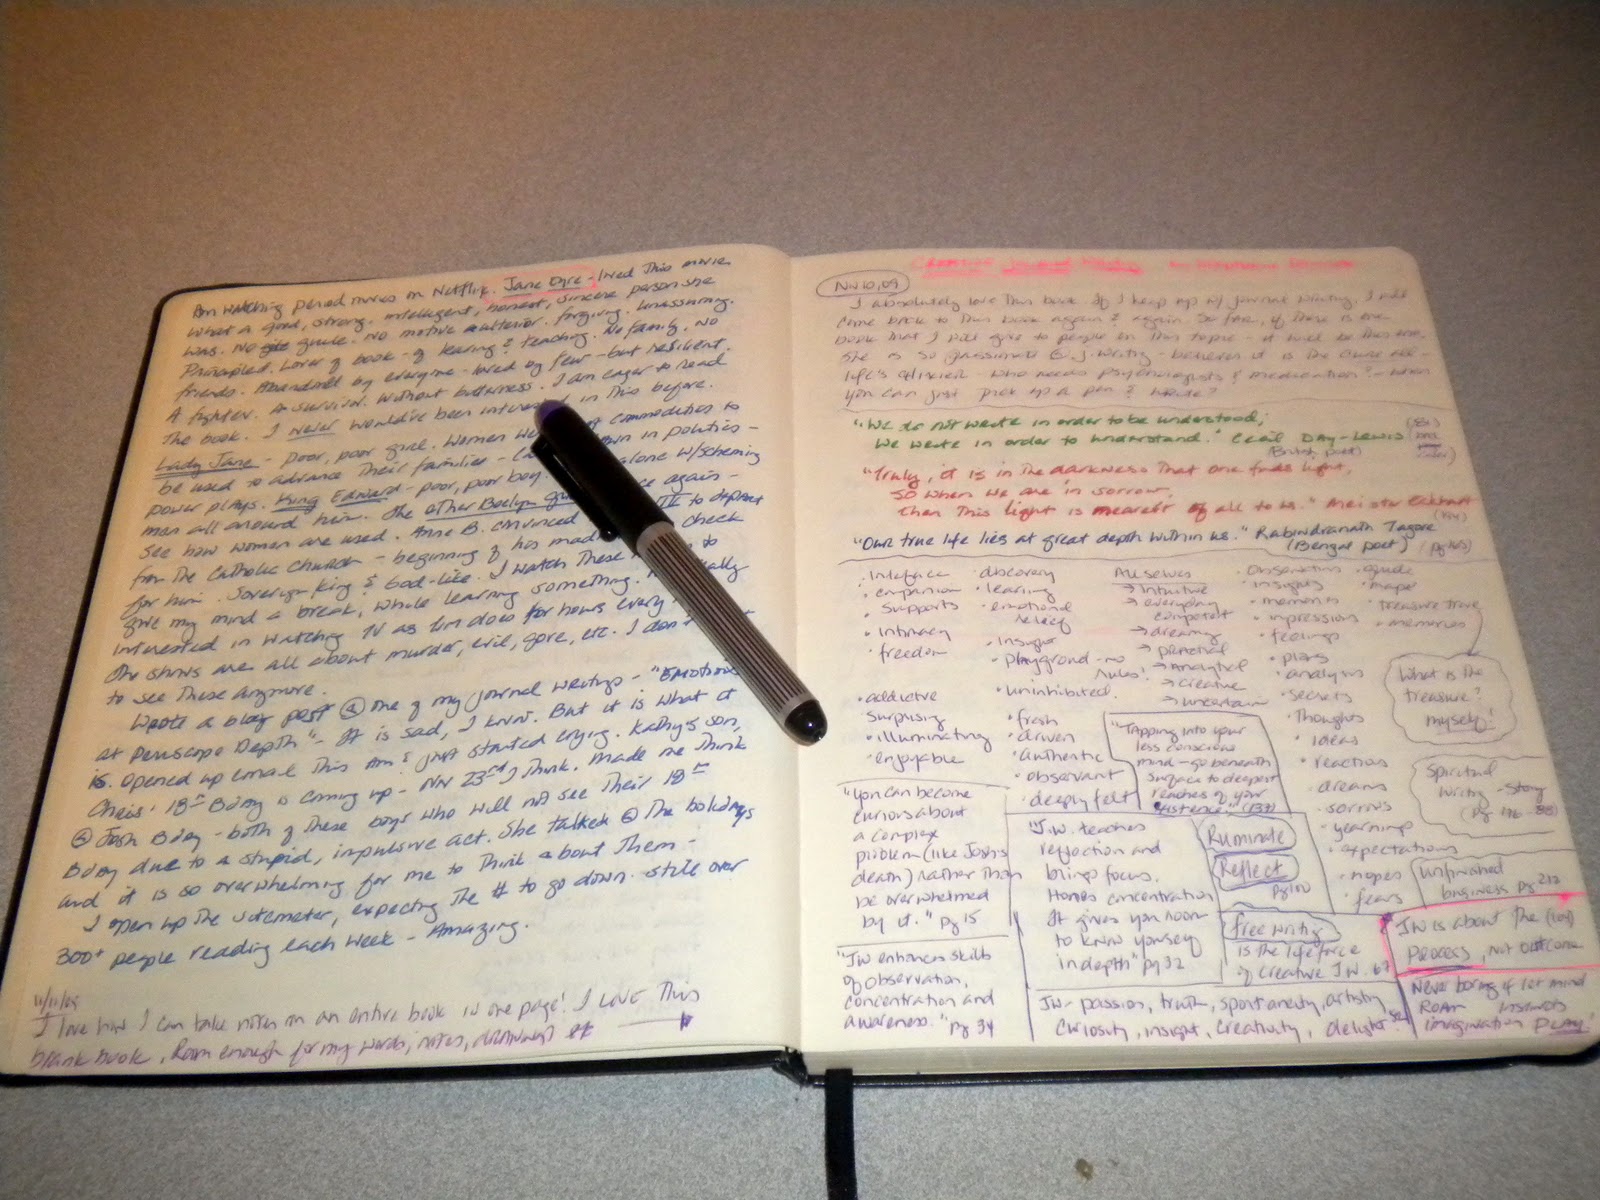 Am watching period movies on Netflix. Jane Eyre - loved this movie
What a good, strong, intelligent, honest, sincere person she
was. No guile. No motive ulterior. forgiving. Unassuming.
Principled. Lover of book - of learing & teaching. No family. No
friends. Abandond by everyone - loved by few - but resilient.
A fighter. A survivor. Without bitterness. I am eager to read
The book. I never would've been in this before.
Lady Jane - poor, poor girl. Women commodities to
be used to advance their families - in politics -
power plays. King Edward - poor, poor boy. alone w/scheming
men all around him. The other Boelyn again -
see how women are used. Anne B. convinced to
from the Catholic Church - beginning of his check
for him. Soverign King & God-like. I watch these to
give my mind a break, while learning something.
interested in watching TV as Tim does for hours every
The shows are all about murder, evil, gore, etc. I don't
to see these anymore.
Wrote a blog post one of my journal writings - "Emotions
at Periscope Depth" - It is sad, I know. But it is what it
is. Opened up email this Am & just started crying. Kathy's son,
Chris' 18th Bday is coming up - Nov 23rd I think. Made me think
Josh Bday - both of these boys who will not see their 18th
Bday due to a stupid, impulsive act. She talked the holidays
and it is so overwhelming for me to think about them -
I open up the sitemeter, expecting the # to go down. still over
300+ people reading each week - Amazing.
I love how I can take notes on an entire book in one page! I LOVE This
blank book. Room enough for my words, notes, drawings
Nov 10, 09
I absolutely love this book. If I keep up w/ journal writing, I will
come back to this book again & again. So far, if there is one
book that I will give to people on this topic - it will be this one.
She is so passionate j. writing - believes it is the cure all -
life's elixier - who needs psychologists & medication? - when
you can just pick up a pen & write?
"We do not write in order to be understood;
We write in order to understand." Cecil Day-Lewis
(British poet)
"Truly, it is in the darkness that one finds light,
so when we are in sorrow,
then this light is nearest of all to us." Meister Eckhart
"Our true life lies at great depth within us." Rabindranath Tagore
(Bengal poet)
companion
supports
intimacy
freedom
addictive
surprising
illuminating
enjoyable
discovery
learing
emotional relief
insight
playground - no rules!
uninhibited
fresh
driven
authentic
observant
deeply felt
All selves
intuitive
everyday
competent
dreamy
practical
Analytical
creative
uncertain
observations
insights
memories
impressions
feelings
plans
analysis
secrets
thoughts
ideas
reactions
dreams
sorrows
yearnings
expectations
hopes
fears
guide
map
treasure trove
memories
What is the
treasure?
myself!
"Tapping into your
less conscious
mind - go beneath
surface to deepest
reaches of your
existence"
Spiritual
Writing - Story
"You can become
curious about
a complex
problem (like Josh's
death) rather than
be overwhelmed
by it." pg 15
"J.W. teaches
reflection and
brings focus.
Hones concentration
It gives you room
to know yourself
in depth" pg 32
Ruminate
Reflect
Unfinished
business pg 212
free writing
is the life force
of creative J.W. 67
JW is about the
process, not outcome
"JW enhances skills
of observation,
concentration and
awareness." pg 34
JW - passion, truth, spontaneity, artistry
curiosity, insight, creativity, delight
Never boring if let mind
Roam
imagination play!